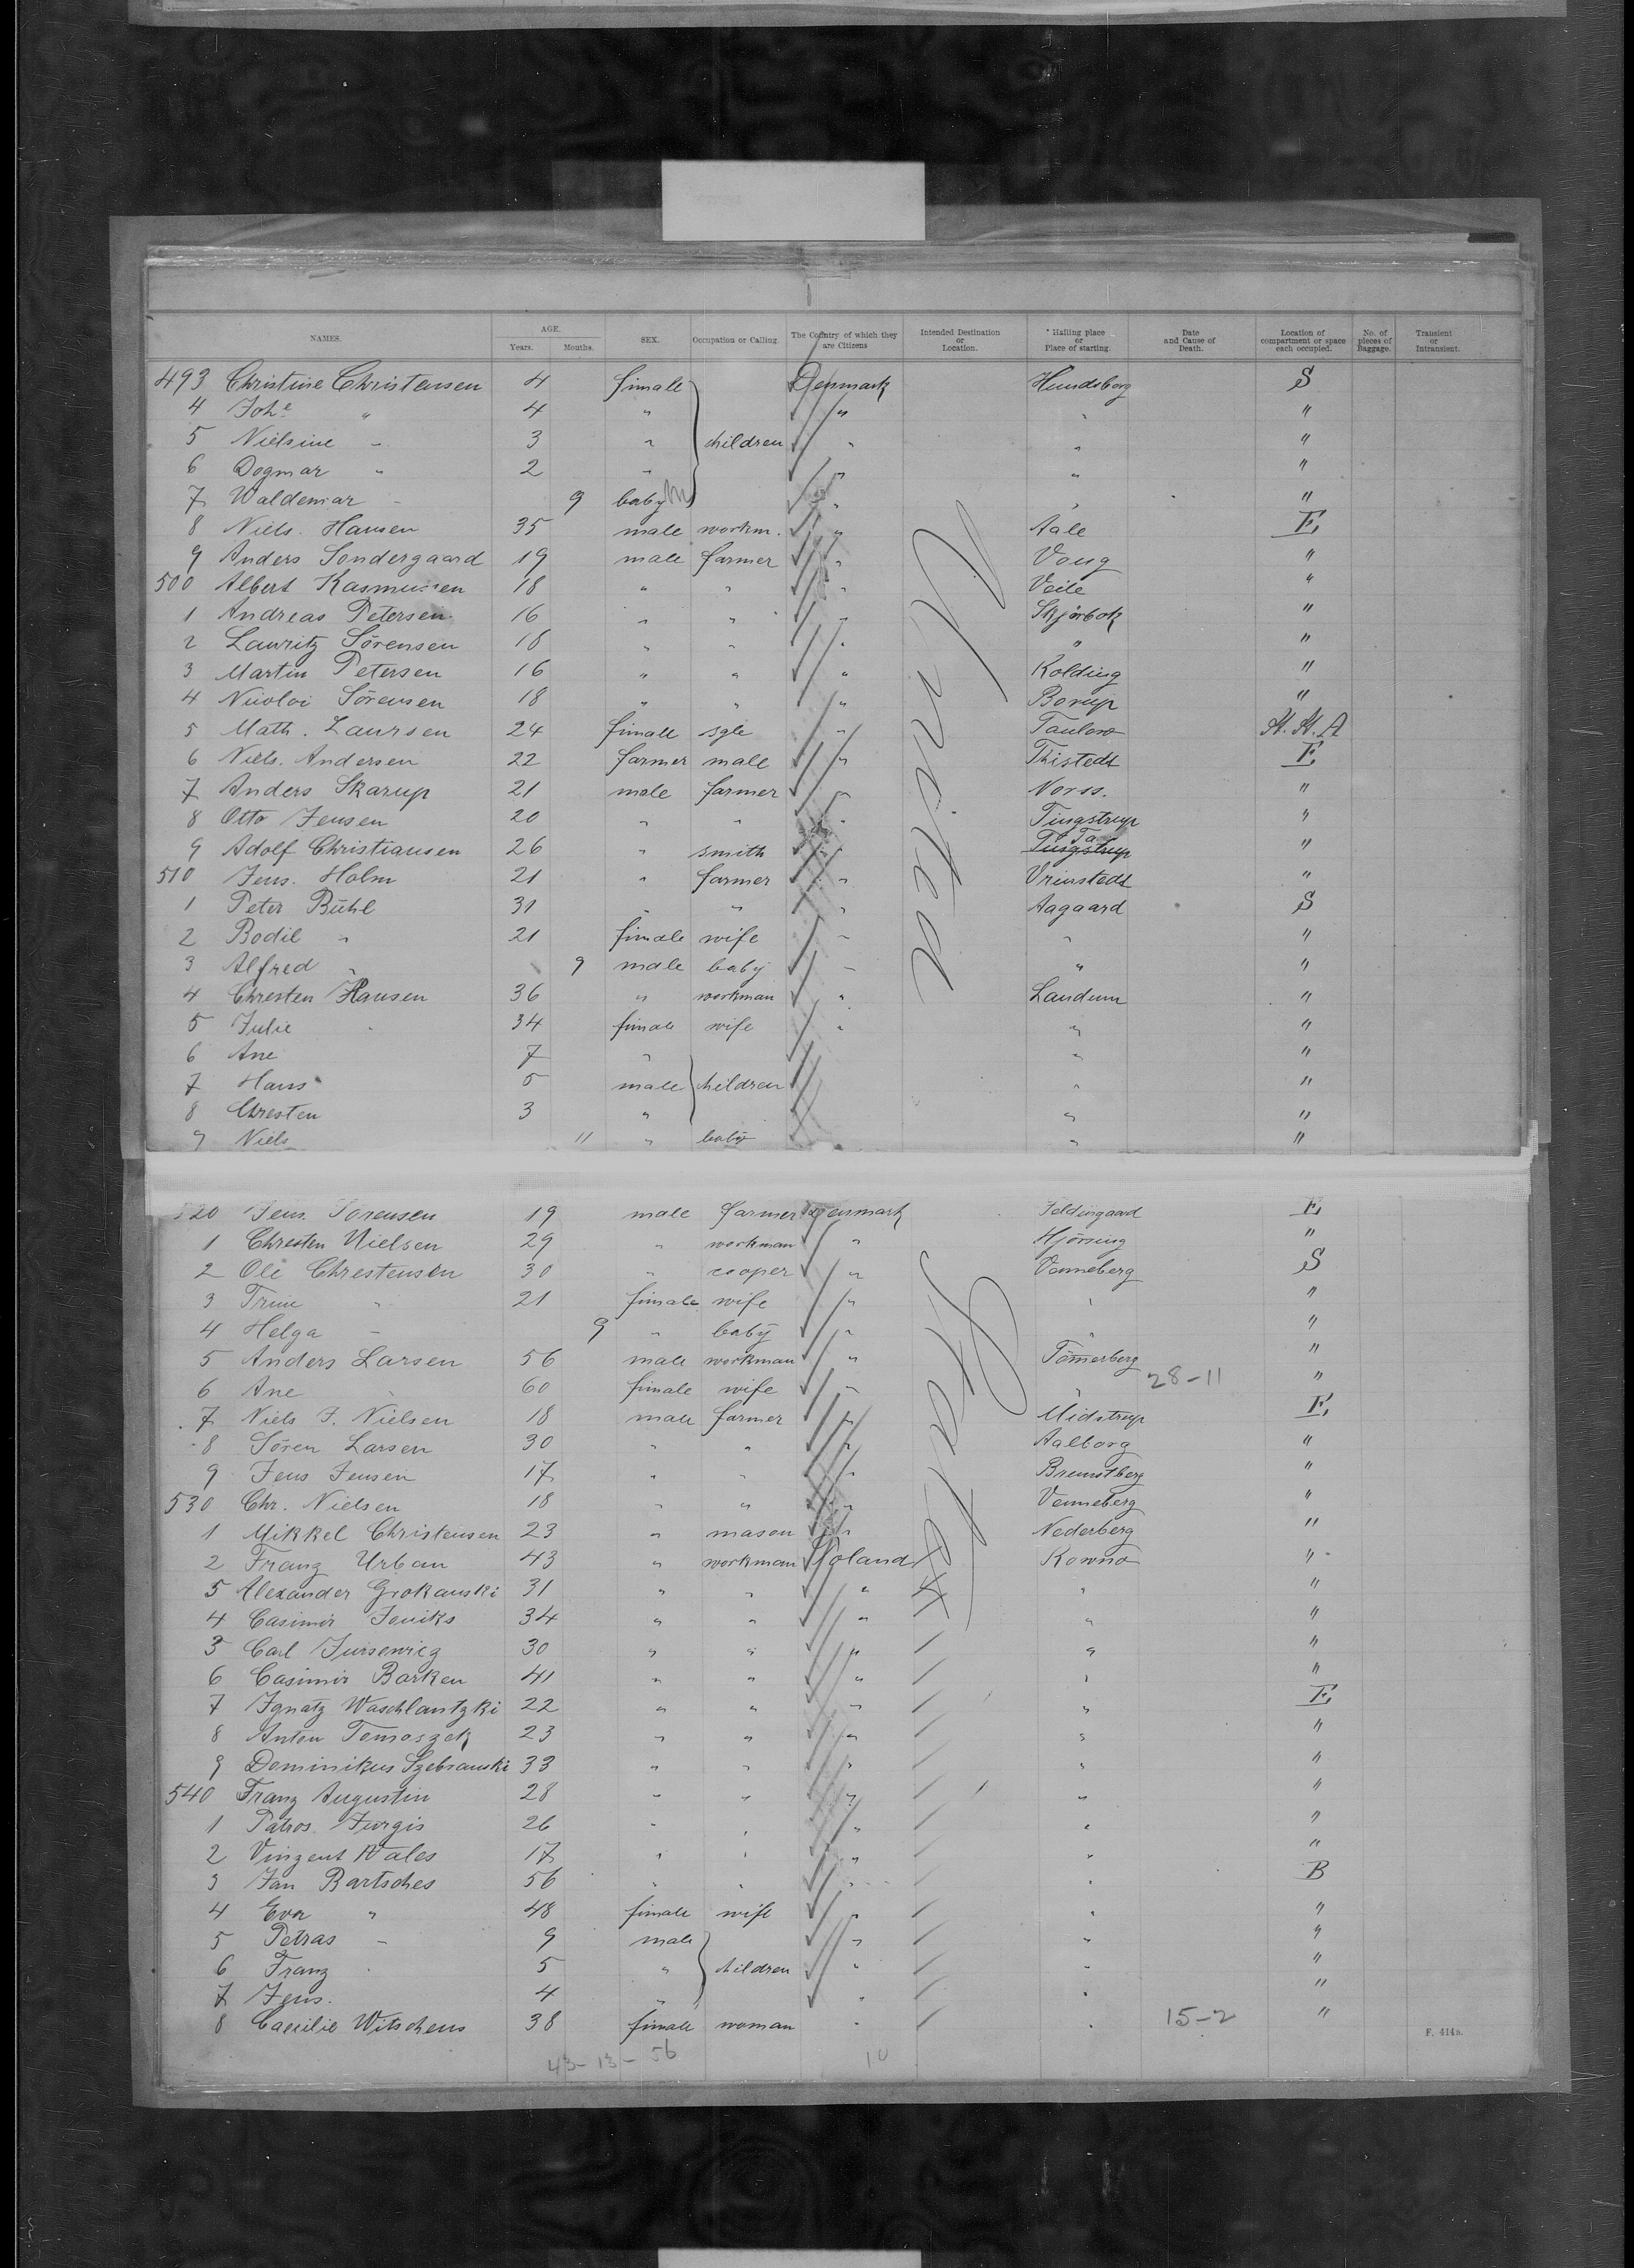 NAMES. AGE. Years. Months. SEX. Occupation or Calling. The Country of which they are Citizens Intended Destination or Location. Hailing place or Place of starting. Date and Cause of Death. Location of compartment or space each occupied. No. of pieces of Baggage. Transient or Intransient.
493 Christine Christensen 4 fimale Denmark Hundsborg S
4 Johe " 4 " " " "
5 Nielsine " 3 " children " " "
6 Dogmar " 2 " " " "
7 Waldemar " 9 baby M " " "
8 Niels. Hansen 35 male workm. " Aale E
9 Anders Sondergaard 19 male farmer " Voug "
500 Albert Rasmussen 18 " " " Veile "
1 Andreas Petersen 16 " " " Skjörbok "
2 Lauritz Sörensen 18 " " " " "
3 Martin Petersen 16 " " " Kolding "
4 Nicoloi Sörensen 18 " " " Borup "
5 Math. Laursen 24 fimale sgle " Taulow St. St. A
6 Niels. Andersen 22 farmer male " Thistedt E
7 Anders Skarup 21 male farmer " Norss. "
8 Otto Jensen 20 " " " Tingstrup "
9 Adolf Christiansen 26 " smith " Tingstrup "
510 Jens. Holm 21 " farmer " Vrinstedt "
1 Peter Bühl 31 " " " Aagaard S
2 Bodil " 21 fimale wife " " "
3 Alfred " 9 male baby " " "
4 Chresten Hansen 36 " workman " Landum "
5 Julie " 34 fimale wife " " "
6 Ane 7 " " "
7 Hans 5 male children " "
8 Chresten 3 " " "
9 Niels 11 " baby " "
520 Jens. Sorensen 19 male farmer Denmark Feldingaard E
1 Chresten Nielsen 29 " workman " Hjörring "
2 Ole Chrestensen 30 " cooper " Venneberg S
3 Trine " 21 fimale wife " " "
4 Helga " 9 " baby " " "
5 Anders Larsen 56 male workman " Tömerberg "
28-11
6 Ane " 60 fimale wife " " "
7 Niels J. Nielsen 18 male farmer " Midstrup E
8 Sören Larsen 30 " " " Aalborg "
9 Jens Jensen 17 " " " Brunstberg "
530 Chr. Nielsen 18 " " " Venneberg "
1 Mikkel Christensen 23 " mason " Nederberg "
2 Franz Urban 43 " workman Poland Kowno "
5 Alexander Grokauski 31 " " " " "
4 Casimir Joniks 34 " " " " "
3 Carl Jursewicz 30 " " " " "
6 Casimir Barken 41 " " " " "
7 Ignatz Waschlantzki 22 " " " " E
8 Anton Tomoszek 23 " " " " "
9 Dominikus Szebrauski 33 " " " " "
540 Franz Augustin 28 " " " " "
1 Patros. Jurgis 26 " " " " "
2 Vinzent Wales 17 " " " " "
3 Jan Bartsches 56 " " " " B
4 Eva " 48 fimale wife " " "
5 Petras " 9 male " " "
6 Franz " 5 " children " " "
7 Jens. 4 " " " "
8 Caecilie Witschens 38 fimale woman " " 15-2 "
F. 414a.
43-13-56 10